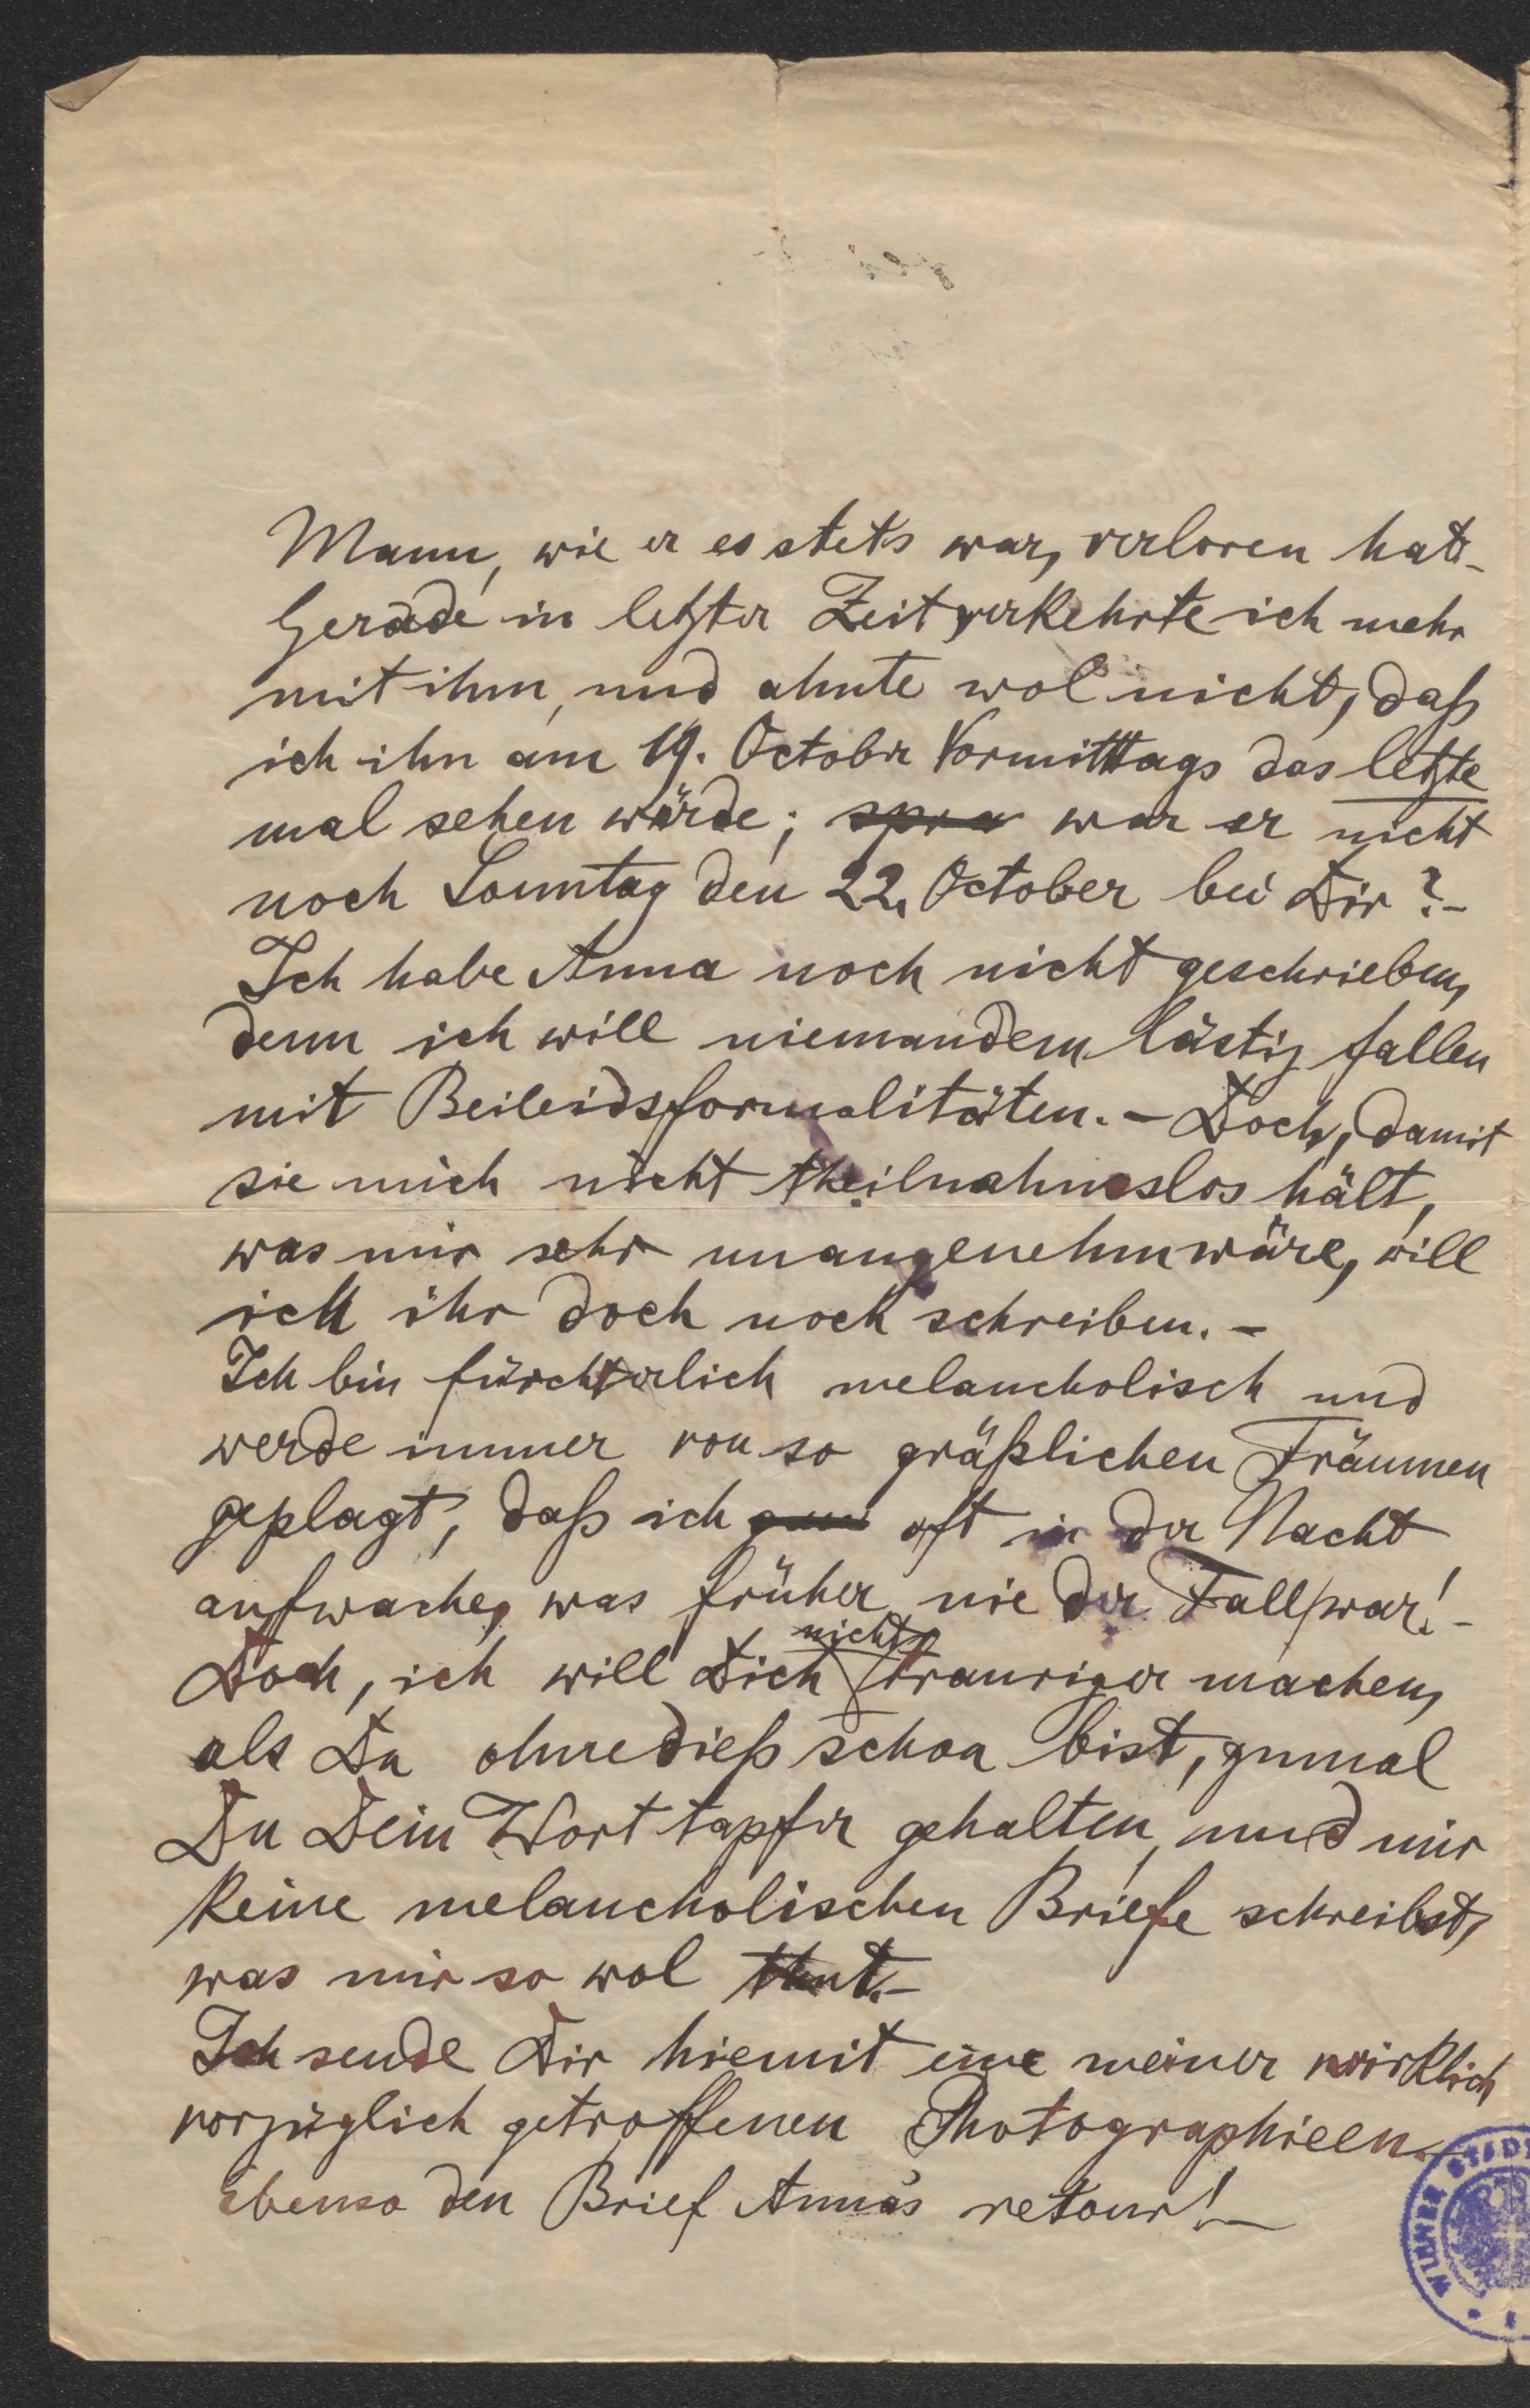 Mann, wie er es stets war, verloren hat.-
Gerade in letzter Zeit verkehrte ich mehr
mit ihm, und ahnte wol nicht, daß
ich ihn am 19. October Vormitttags das letzte
mal sehen würde; spra war er nicht
noch Sonntag den 22. October bei Dir?-
Ich habe Anna noch nicht geschrieben,
denn ich will niemandem lästig fallen
mit Beileidsformalitäten.- Doch, damit
sie mich nicht theilnahmslos hält,
was mir sehr unangenehm wäre, will
ich ihr doch noch schreiben.-
Ich bin fürchterlich melancholisch und
werde immer von so gräßlichen Träumen
geplagt, daß ich oft in der Nacht
aufwache, was früher nie der Fall war!-
Doch, ich will Dich nicht trauriger machen,
als Du ohnedieß schon bist, zumal
Du Dein Wort tapfer gehalten, und mir
keine melancholischen Briefe schreibst,
was mir so wol thut.-
Ich sende Dir hiemit eine meiner wirklich
vorzüglich getroffenen Photographieen.
ebenso den Brief Anna's retour!-
WIENER STADT